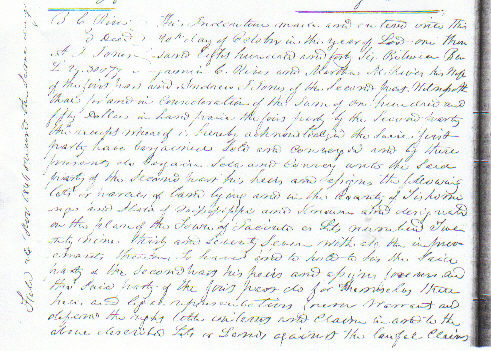 This Indenture made and entered into this
day of October in the year of Lord one thou
sand Eight hundred and forty Six Between Ben
jamin C. Rives and Martha M. Rives his wife
of the first part and Andrew J. Jones of the Second part. Witnesseth
that for and in Consideration of the Sum of one hundred and
fifty Dollars in hand paid the first party by the Second party
the receipt whereof is hereby acknowledged the Said first
party have bargained Sold and Conveyed and by these
presents do bargain Sell and Convey unto the Said
party of the Second part his heirs and assigns the following
lots or parcels of Land lying and in the County of Tishomi
ngo and State of Mississippi and Known and designated
on the plan of the Town of Jacinto as Lots numbered Twe
nty nine Thirty and Seventy Seven With all the improve
ments thereon To have and to hold to him the Said
party of the Second part his heirs and assigns forever and
the Said party of the first part do for themselves their
heirs and legal representatives forever Warrant and
defend the right title interest and Claim in and to the
above described Lots or Lands against the lawful Claims